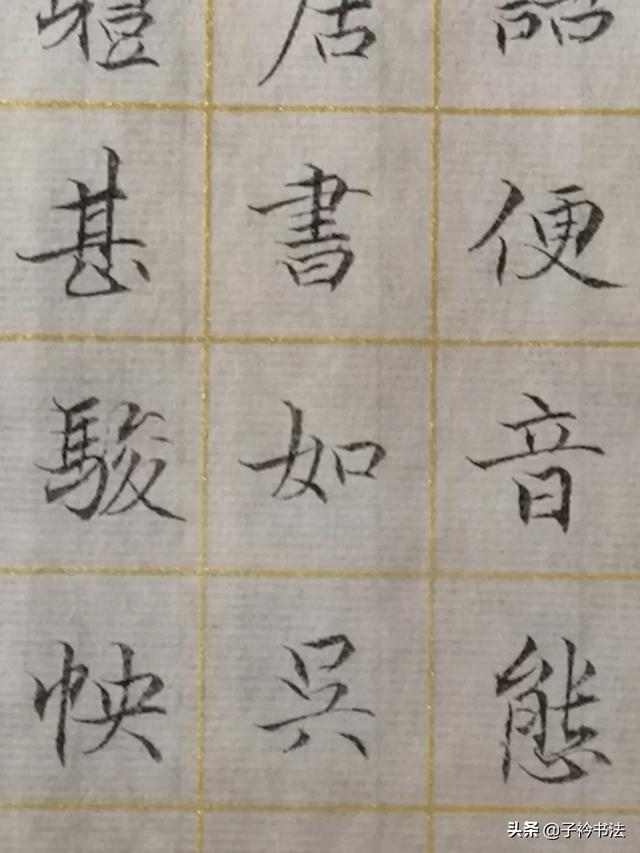 語便音態
居書如吳
體甚駿快
头条 @子衿书法